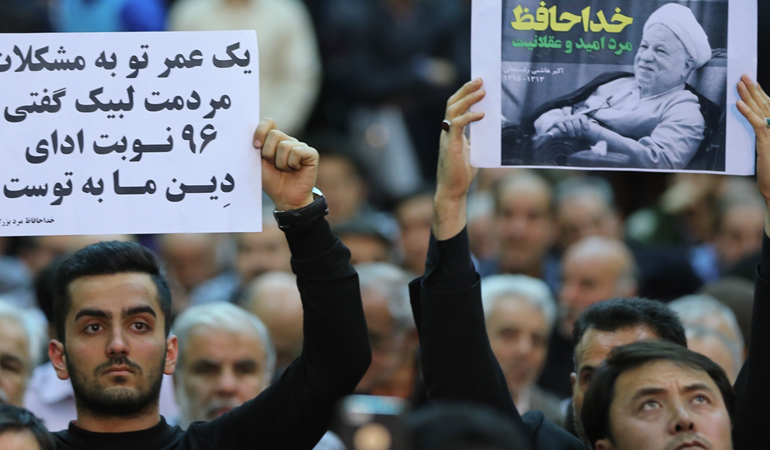 یک عمر تو به مشکلات
مردمت لبیک گفتی
۹۶ نوبت ادای
دِین ما به توست
خداحافظ مرد بزرگ
خداحافظ
مرد امید و عقلانیت
اکبر هاشمی رفسنجانی
۱۳۱۳-۱۳۹۵